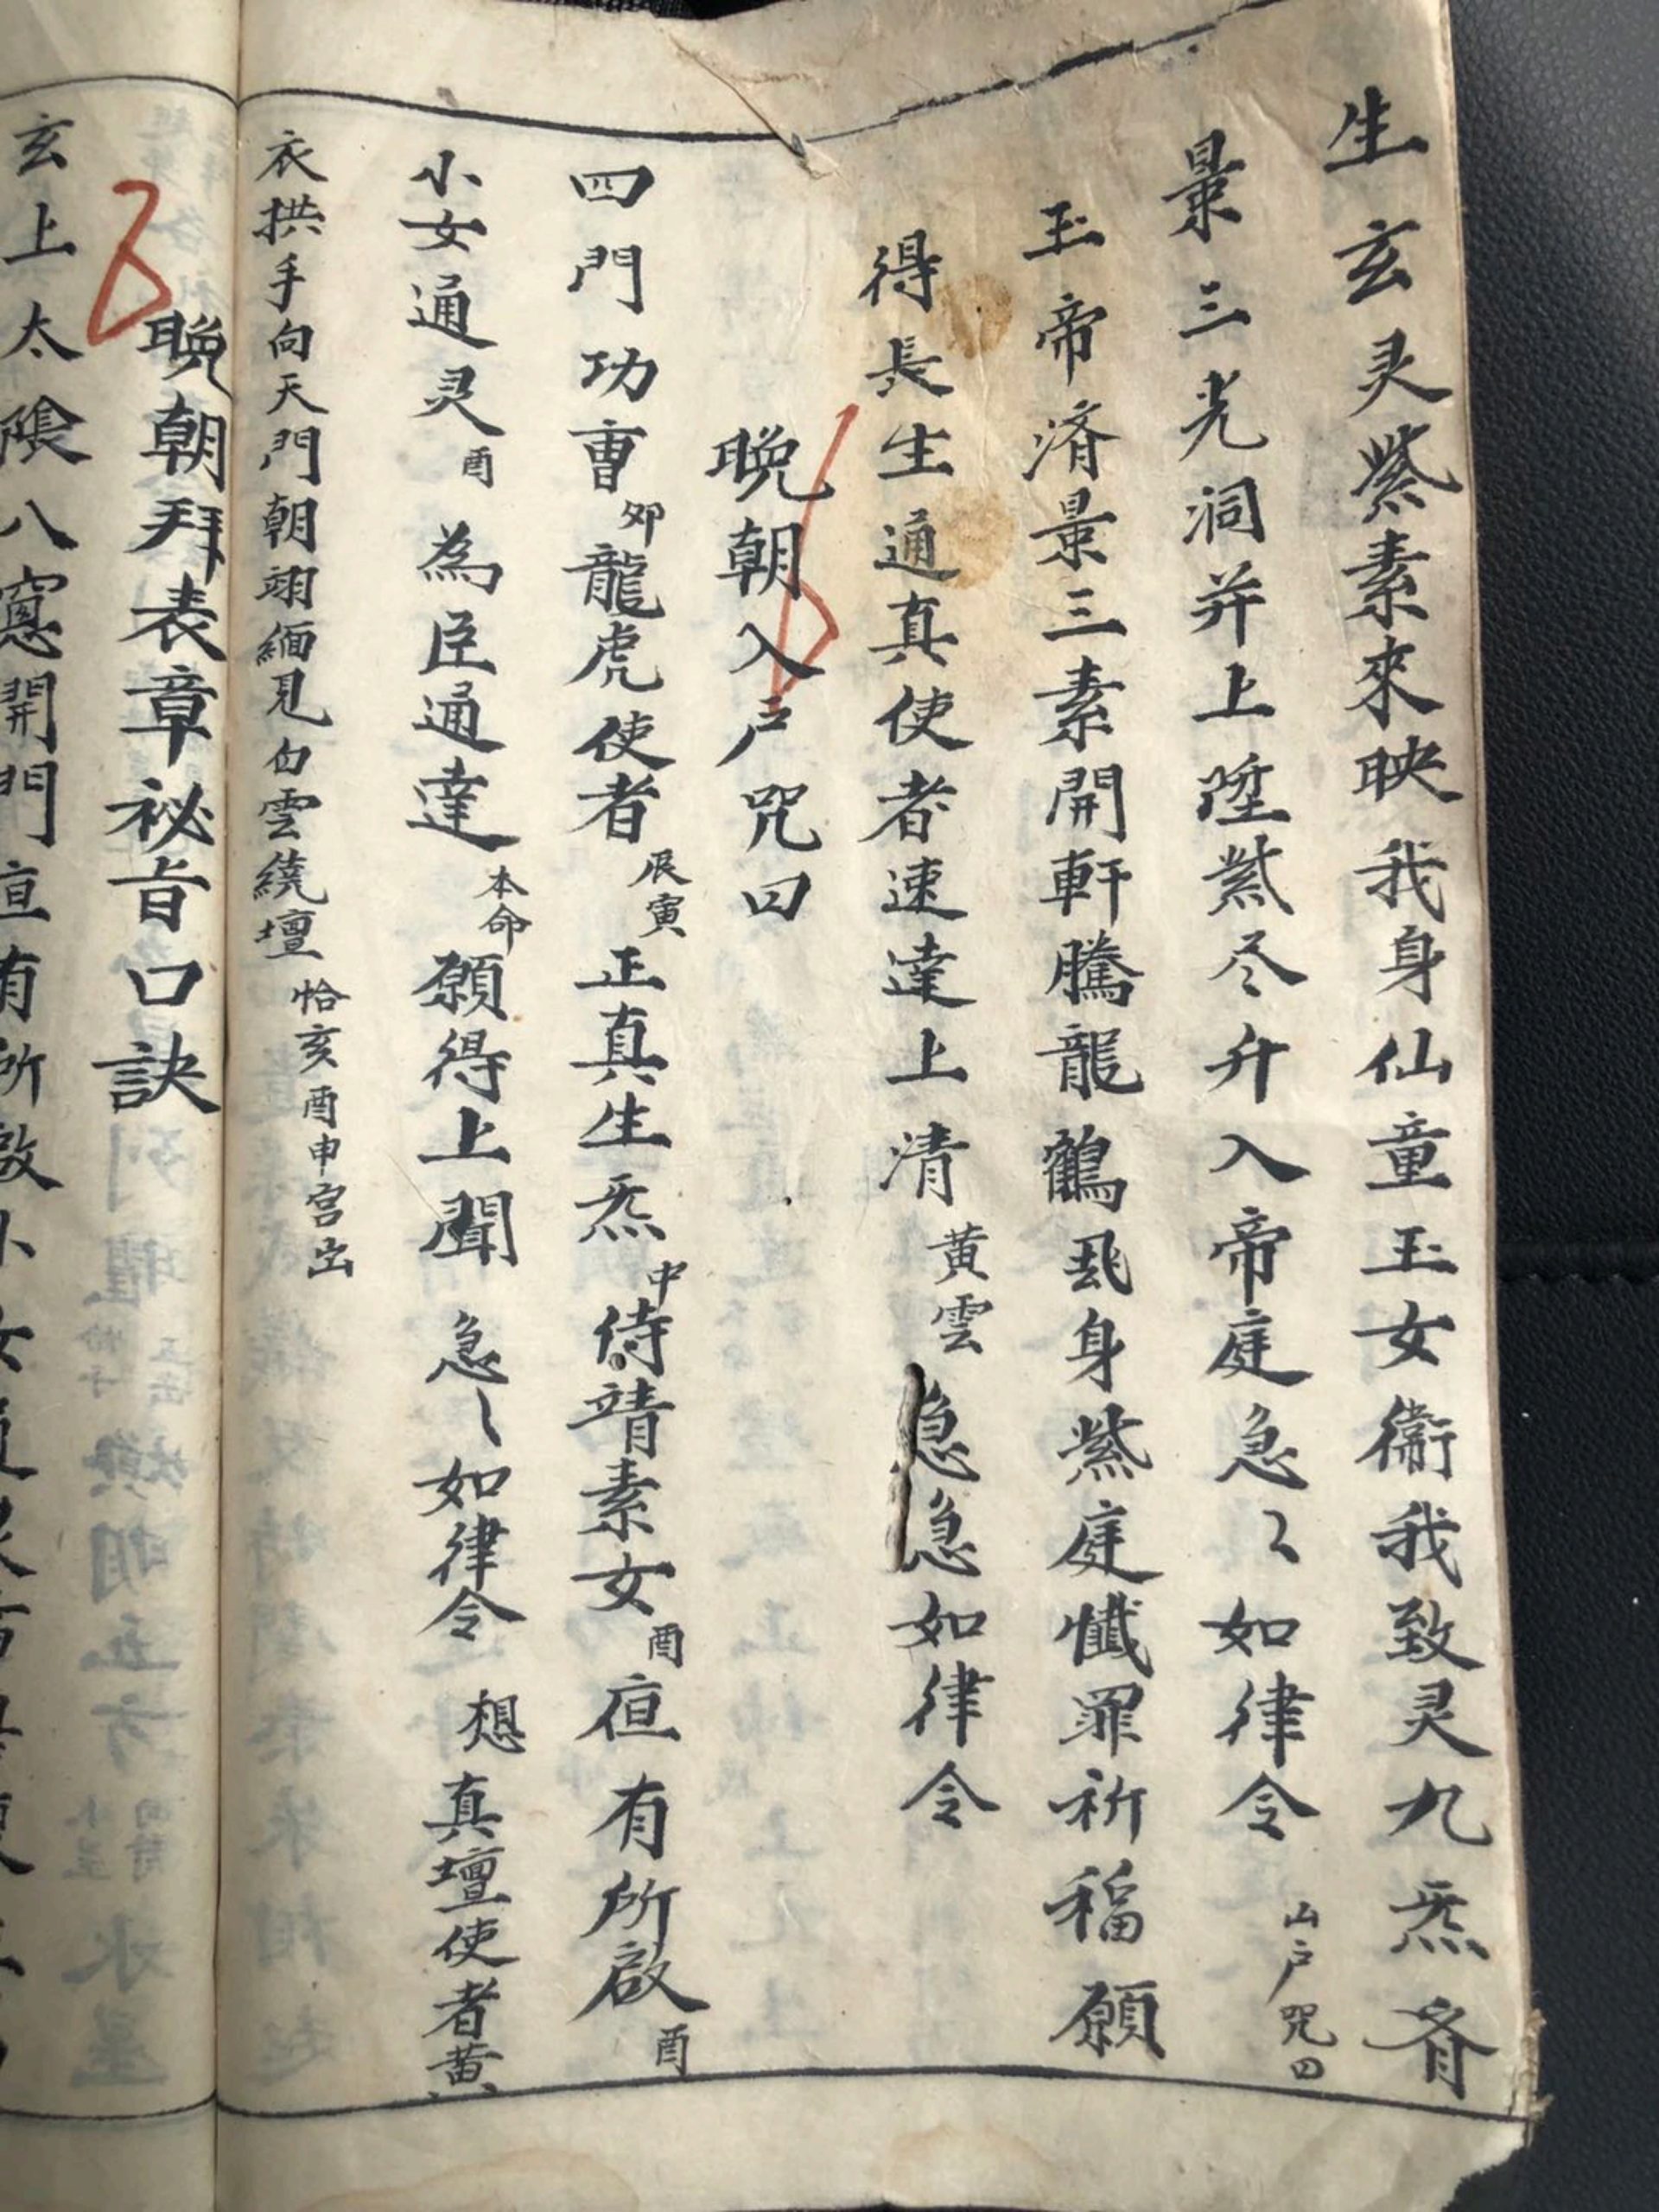 生玄灵紫素來映我身仙童玉女衞我致灵九炁齊
景三光洞并上陞紫尽升入帝庭急々如律令 出户咒曰
玉帝済景三素開軒騰龍鶴飛身紫庭懺罪祈福願
得長生通真使者速達上清 黄雲 急急如律令
晚朝入户咒曰
四門功曹 卯 龍虎使者 辰寅 正真生炁 中 侍靖素女 酉 宣有所啟 酉
小女通灵 酉 為臣通達 本命 願得上聞 急々如律令 想真壇使者黄
衣拱手向天門朝翊緬見白雲繞壇 恰亥酉申宫出
晚朝拜表章祕旨口訣
玄上太 八窓開門宣有所啟小女